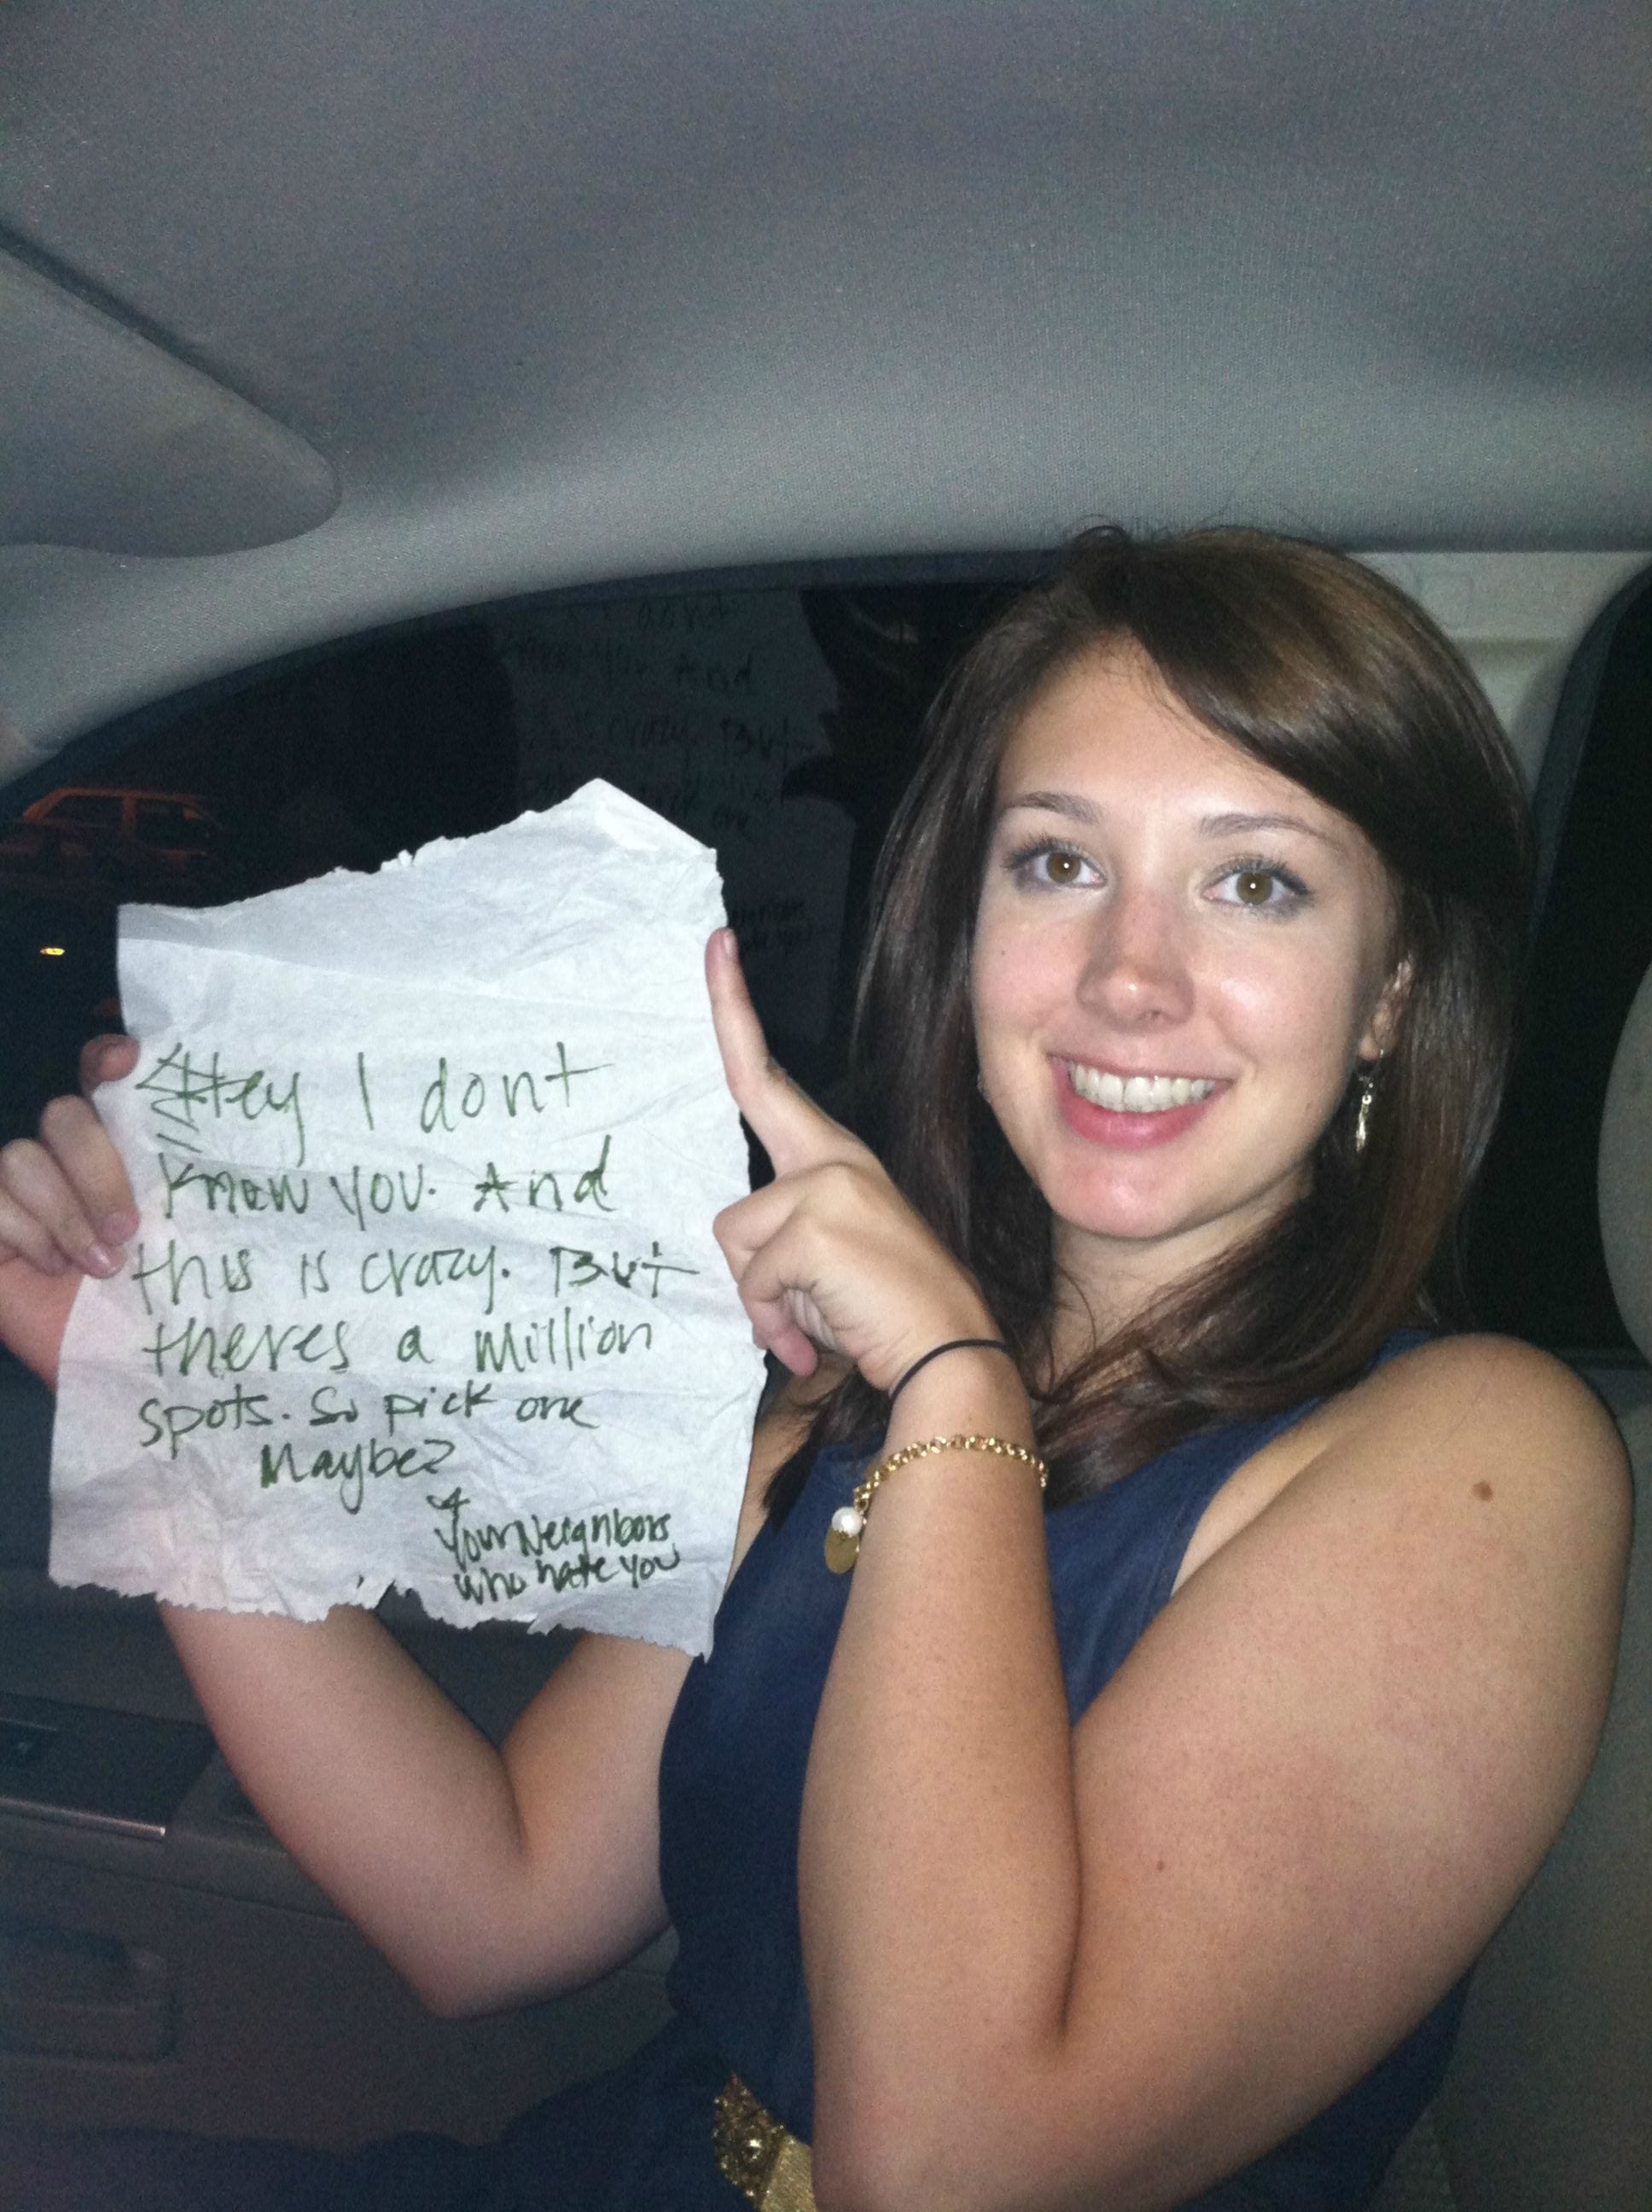 Hey I dont
know you. And
this is crazy. But
theres a million
spots. So pick one
Maybe?
Your Neighbors
who hate you